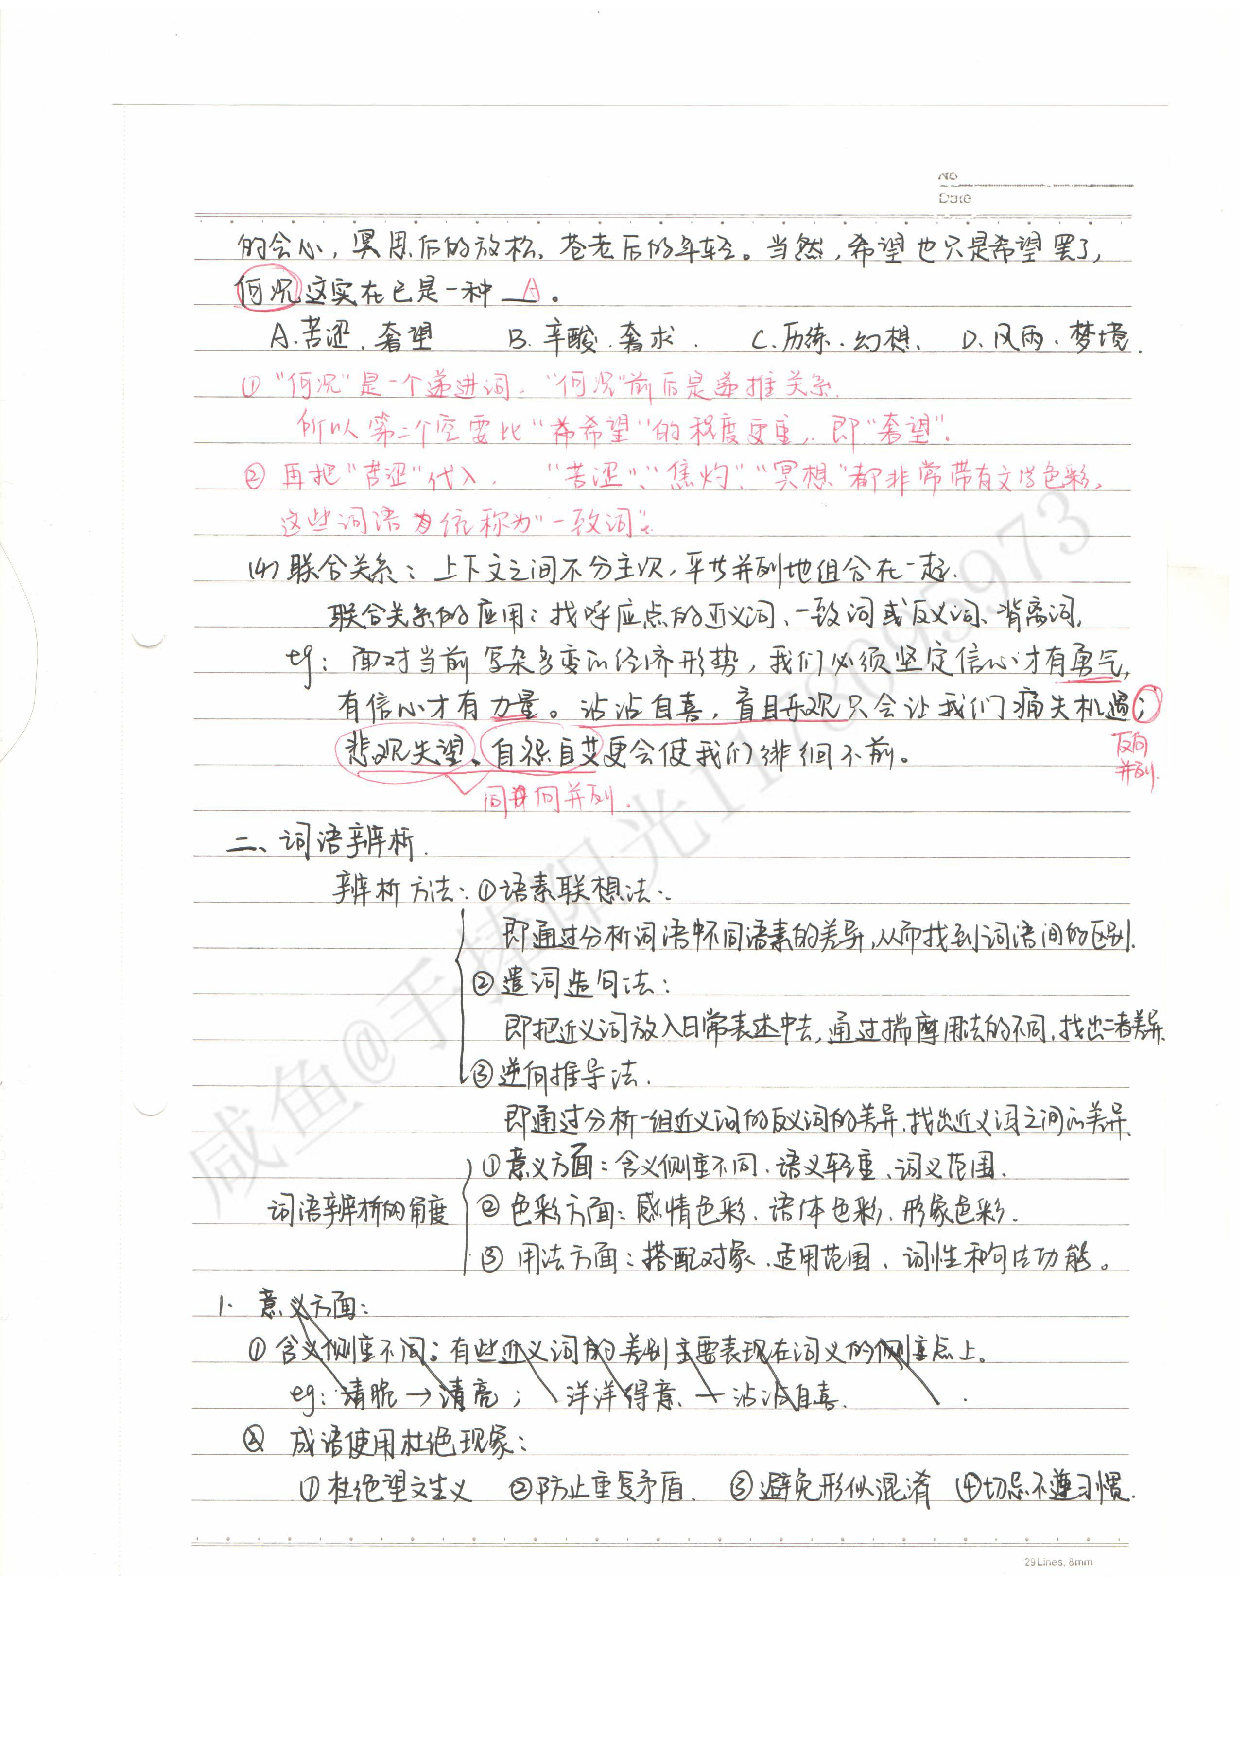 No
Date
的会心，冥思后的放松、苍老后的年轻。当然，希望也只是希望罢了，
何况这实在已是一种 A 。
A.苦涩．奢望 B.辛酸．奢求． C.历练．幻想． D.风雨．梦境．
①“何况”是一个递进词，“何况”前后是递推关系．
所以第二个空要比“希望”的程度更重，即“奢望”．
②再把“苦涩”代入，“苦涩”、“焦灼”、“冥想”都非常带有文学色彩，
这些词语统称为“一致词”．
(4)联合关系：上下文之间不分主次，平等并列地组合在一起．
联合关系的应用：找呼应点的近义词、一致词或反义词、背离词，
eg：面对当前复杂多变的经济形势，我们必须坚定信心才有勇气，
有信心才有力量。沾沾自喜，盲目乐观只会让我们痛失机遇；
悲观失望、自怨自艾更会使我们徘徊不前。
反向
并列．
同向并列．
二、词语辨析．
辨析方法：①语素联想法：
即通过分析词语中不同语素的差异，从而找到词语间的区别．
②遣词造句法：
即把近义词放入日常表述中去，通过揣摩用法的不同，找出二者差异．
③逆向推导法．
即通过分析一组近义词的反义词的差异，找出近义词之间的差异．
①意义方面：含义侧重不同、语义轻重、词义范围．
词语辨析的角度 ②色彩方面：感情色彩、语体色彩、形象色彩．
③用法方面：搭配对象、适用范围、词性和句法功能。
1. 意义方面：
①含义侧重不同：有些近义词的差别主要表现在词义的侧重点上。
eg：清脆→清亮； 洋洋得意 — 沾沾自喜．
② 成语使用杜绝现象：
①杜绝望文生义 ②防止重复矛盾． ③避免形似混淆 ④切忌不遵习惯．
29Lines, 8mm
咸鱼@手捧阳光1178095973